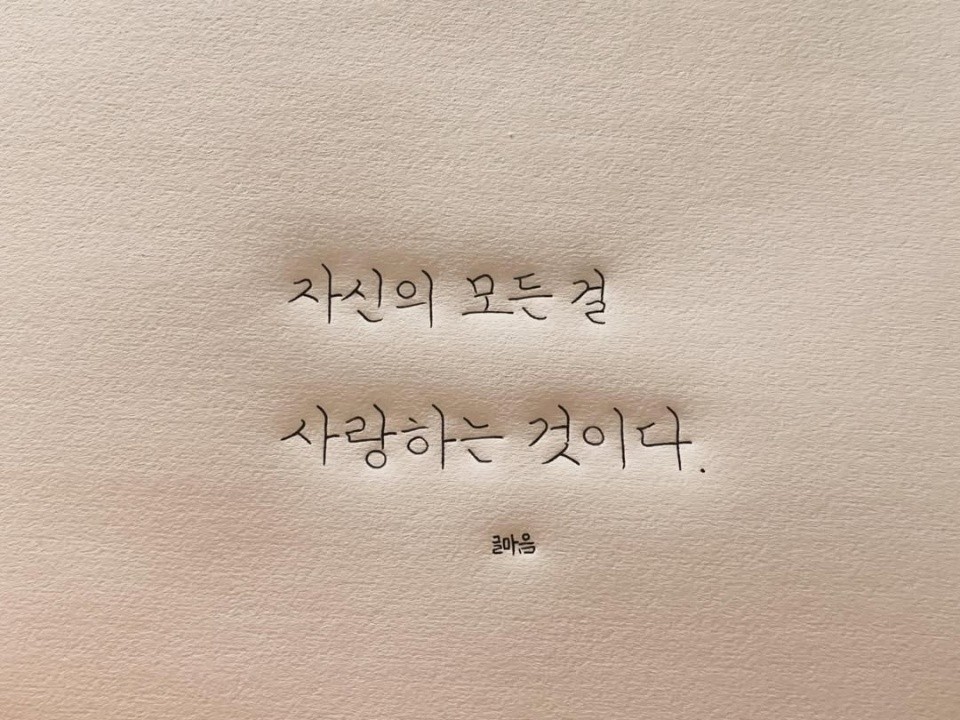 자신의 모든 걸
사랑하는 것이다.
글마음